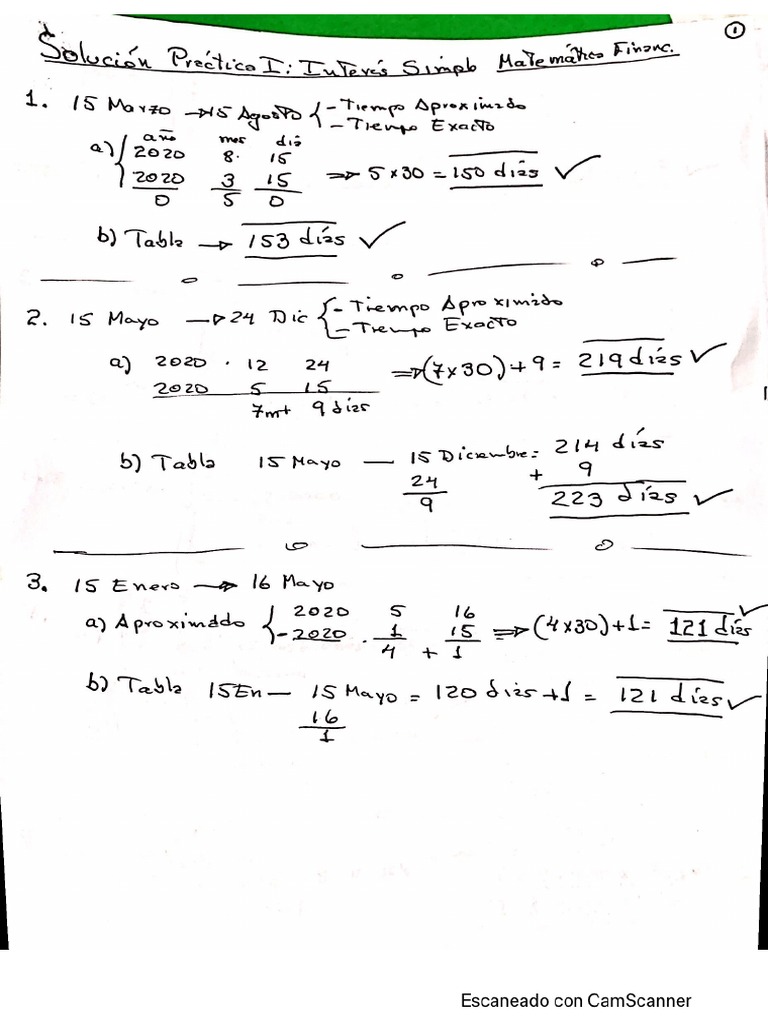 ①
Solución Práctica I: Interés Simple Matemática Financ.
1. 15 Marzo → 15 Agosto { - Tiempo Aproximado
- Tiempo Exacto
año mes día
a) { 2020 8 15
2020 3 15 ⇒ 5 x 30 = 150 días ✓
0 5 0
b) Tabla → 153 días ✓
2. 15 Mayo → 24 Dic { - Tiempo Aproximado
- Tiempo Exacto
a) 2020 12 24 ⇒ (7x30) + 9 = 219 días ✓
2020 5 15
7m+ 9 días
b) Tabla 15 Mayo — 15 Diciembre = 214 días
24 + 9
9 223 días ✓
3. 15 Enero → 16 Mayo
a) Aproximado { 2020 5 16 ⇒ (4x30) + 1 = 121 días ✓
- 2020 1 15
4 + 1
b) Tabla 15 En — 15 Mayo = 120 días + 1 = 121 días ✓
16
1
Escaneado con CamScanner